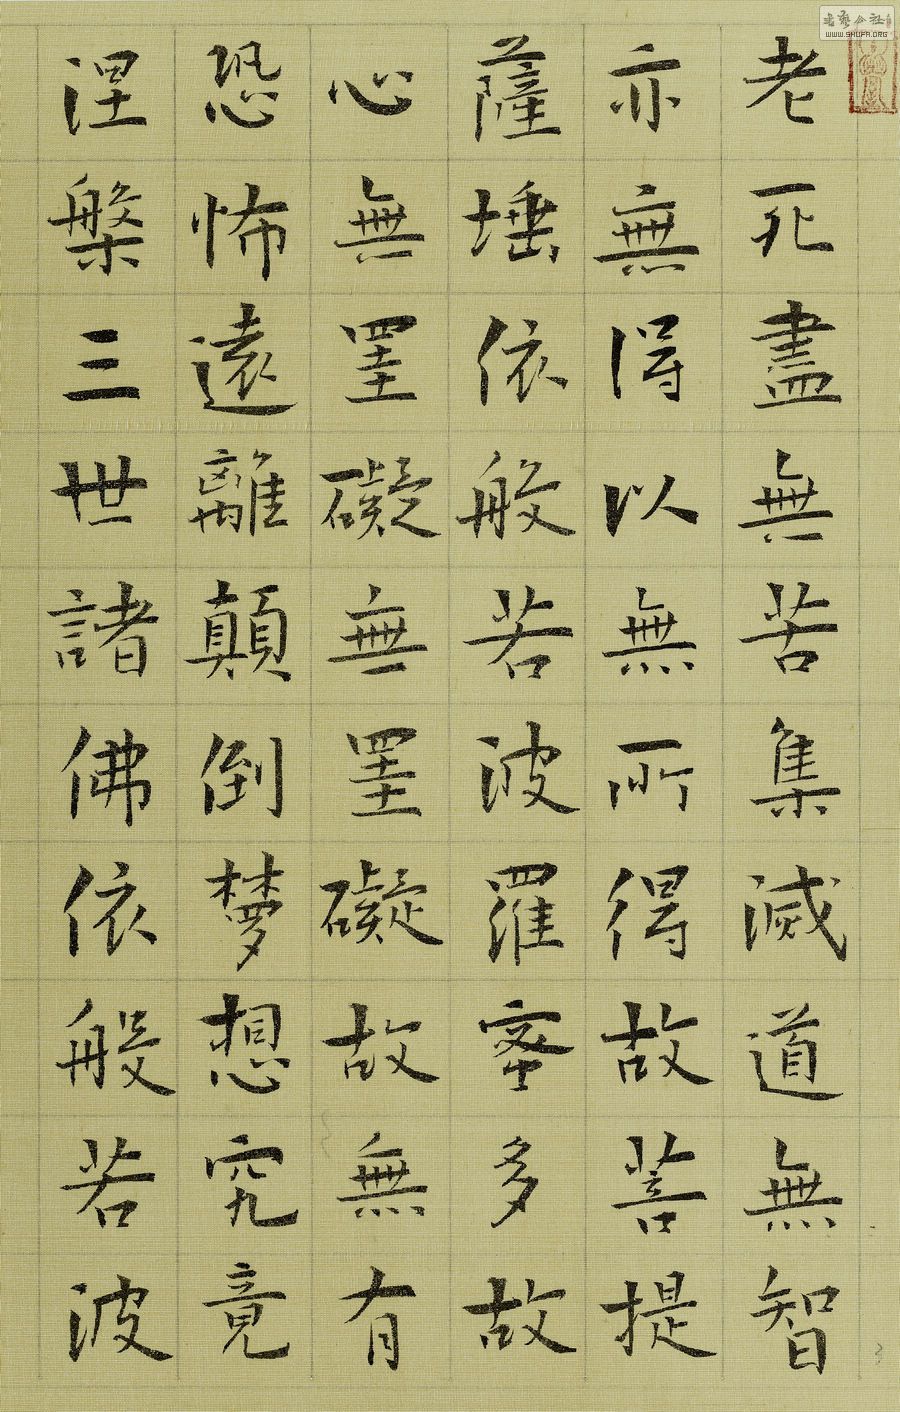 老死盡無苦集滅道無智
亦無得以無所得故菩提
薩埵依般若波羅蜜多故
心無罣礙無罣礙故無有
恐怖遠離顛倒夢想究竟
涅槃三世諸佛依般若波
WWW.SHUFA.ORG